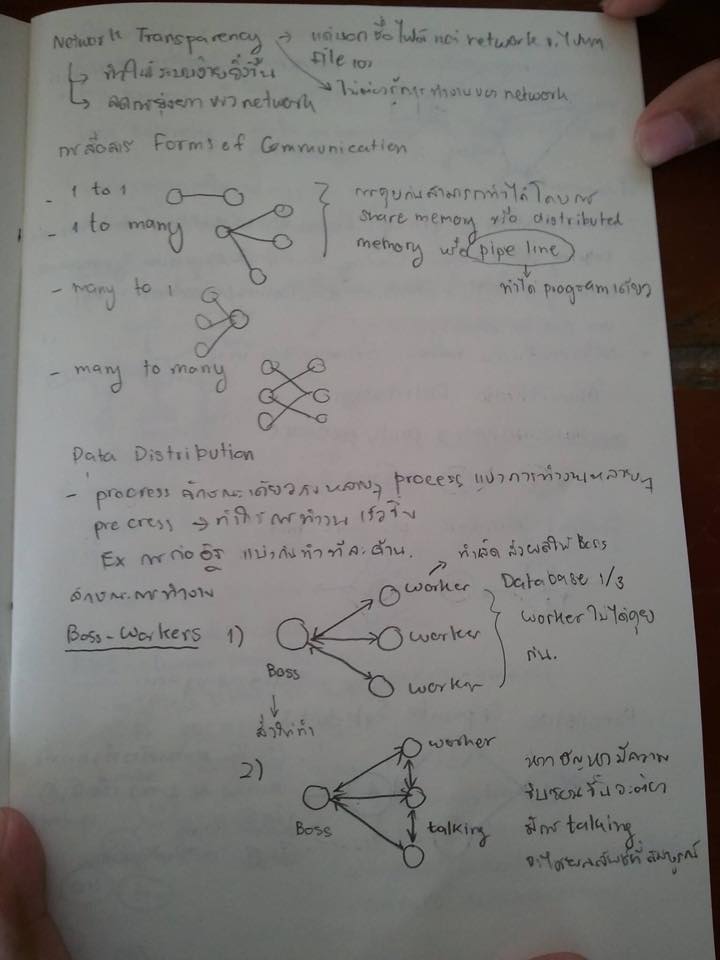 Network Transparency → แค่บอกชื่อไฟล์ แต่ network จะไปหา
file เอง
↳ ทำให้ระบบง่ายยิ่งขึ้น
↳ ลดการยุ่งยาก ของ network
ไม่ต้องรู้การทำงานของ network
การสื่อสาร Forms of Communication
- 1 to 1
- 1 to many
การคุยกันสามารถทำได้โดยการ
share memory หรือ distributed
memory หรือ pipe line
ทำได้ program เดียว
- many to 1
- many to many
Data Distribution
- procress ลักษณะเดียวกันหลายๆ process แบ่งการทำงานหลายๆ
precress → ทำให้การทำงาน เร็วขึ้น
Ex การก่ออิฐ แบ่งกันทำทีละด้าน.
ทำเสร็จ ส่งผลให้ Boss
ลักษณะการทำงาน
Boss-Workers 1)
Boss
สั่งให้ทำ
worker
worker
worker
Database 1/3
worker ไม่ได้คุย
กัน.
2)
Boss
worker
talking
หากปัญหามีความ
ซับซ้อนขึ้นจะต้อง
มีการ talking
จะได้ผลลัพธ์ที่สมบูรณ์